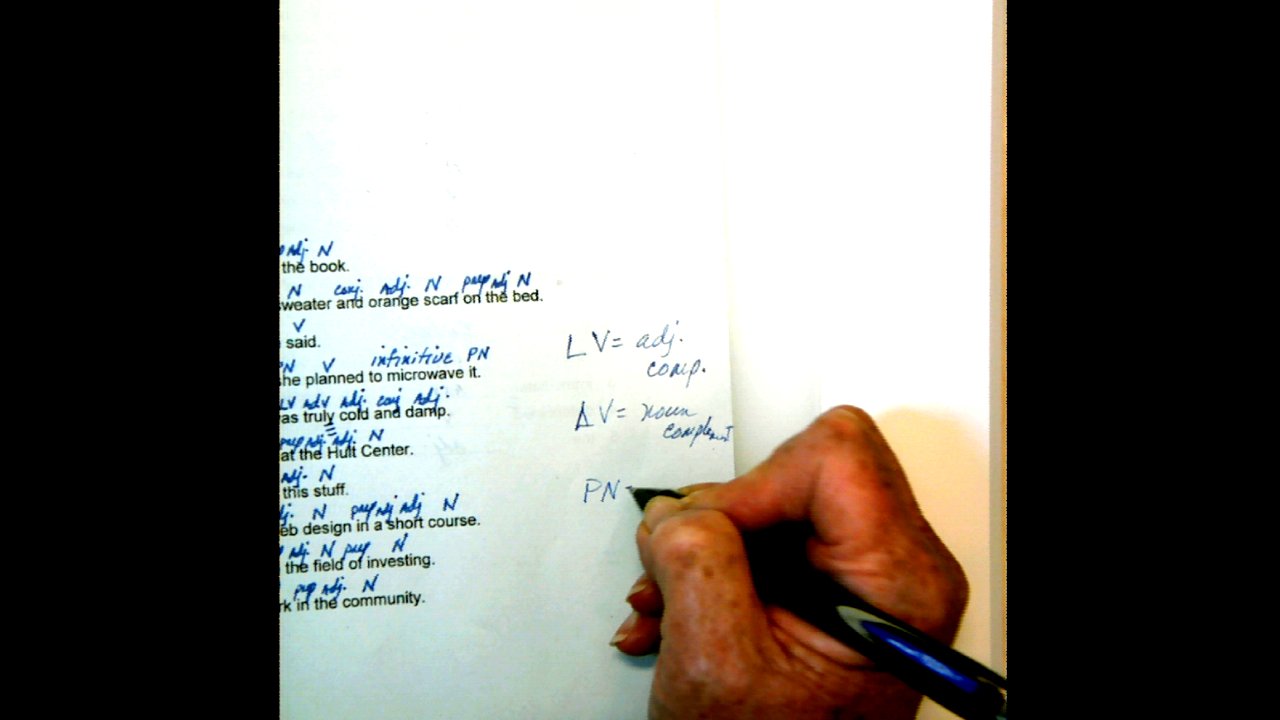 adj. N
the book.
N conj. adj. N prep adj N
sweater and orange scarf on the bed.
V
said.
PN V infinitive PN
she planned to microwave it.
LV adv adj. conj adj.
as truly cold and damp.
prep adj. adj. N
at the Hult Center.
adj. N
this stuff.
N prep adj adj N
eb design in a short course.
adj. N prep N
the field of investing.
prep adj. N
rk in the community.
LV = adj.
comp.
V = noun
complement
PN